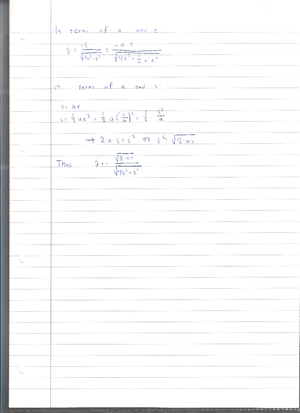 In terms of a and t
ẏ = -ṡ / √(4b² - s²) = -a t / √(4b² - ¼ a² t⁴)
in terms of a and s
ṡ = at
s = ½ at² = ½ a (ṡ/a)² = ½ ṡ²/a
→ 2as = ṡ² ⇒ ṡ = √2as
Thus ẏ = - √2as / √(4b² - s²)